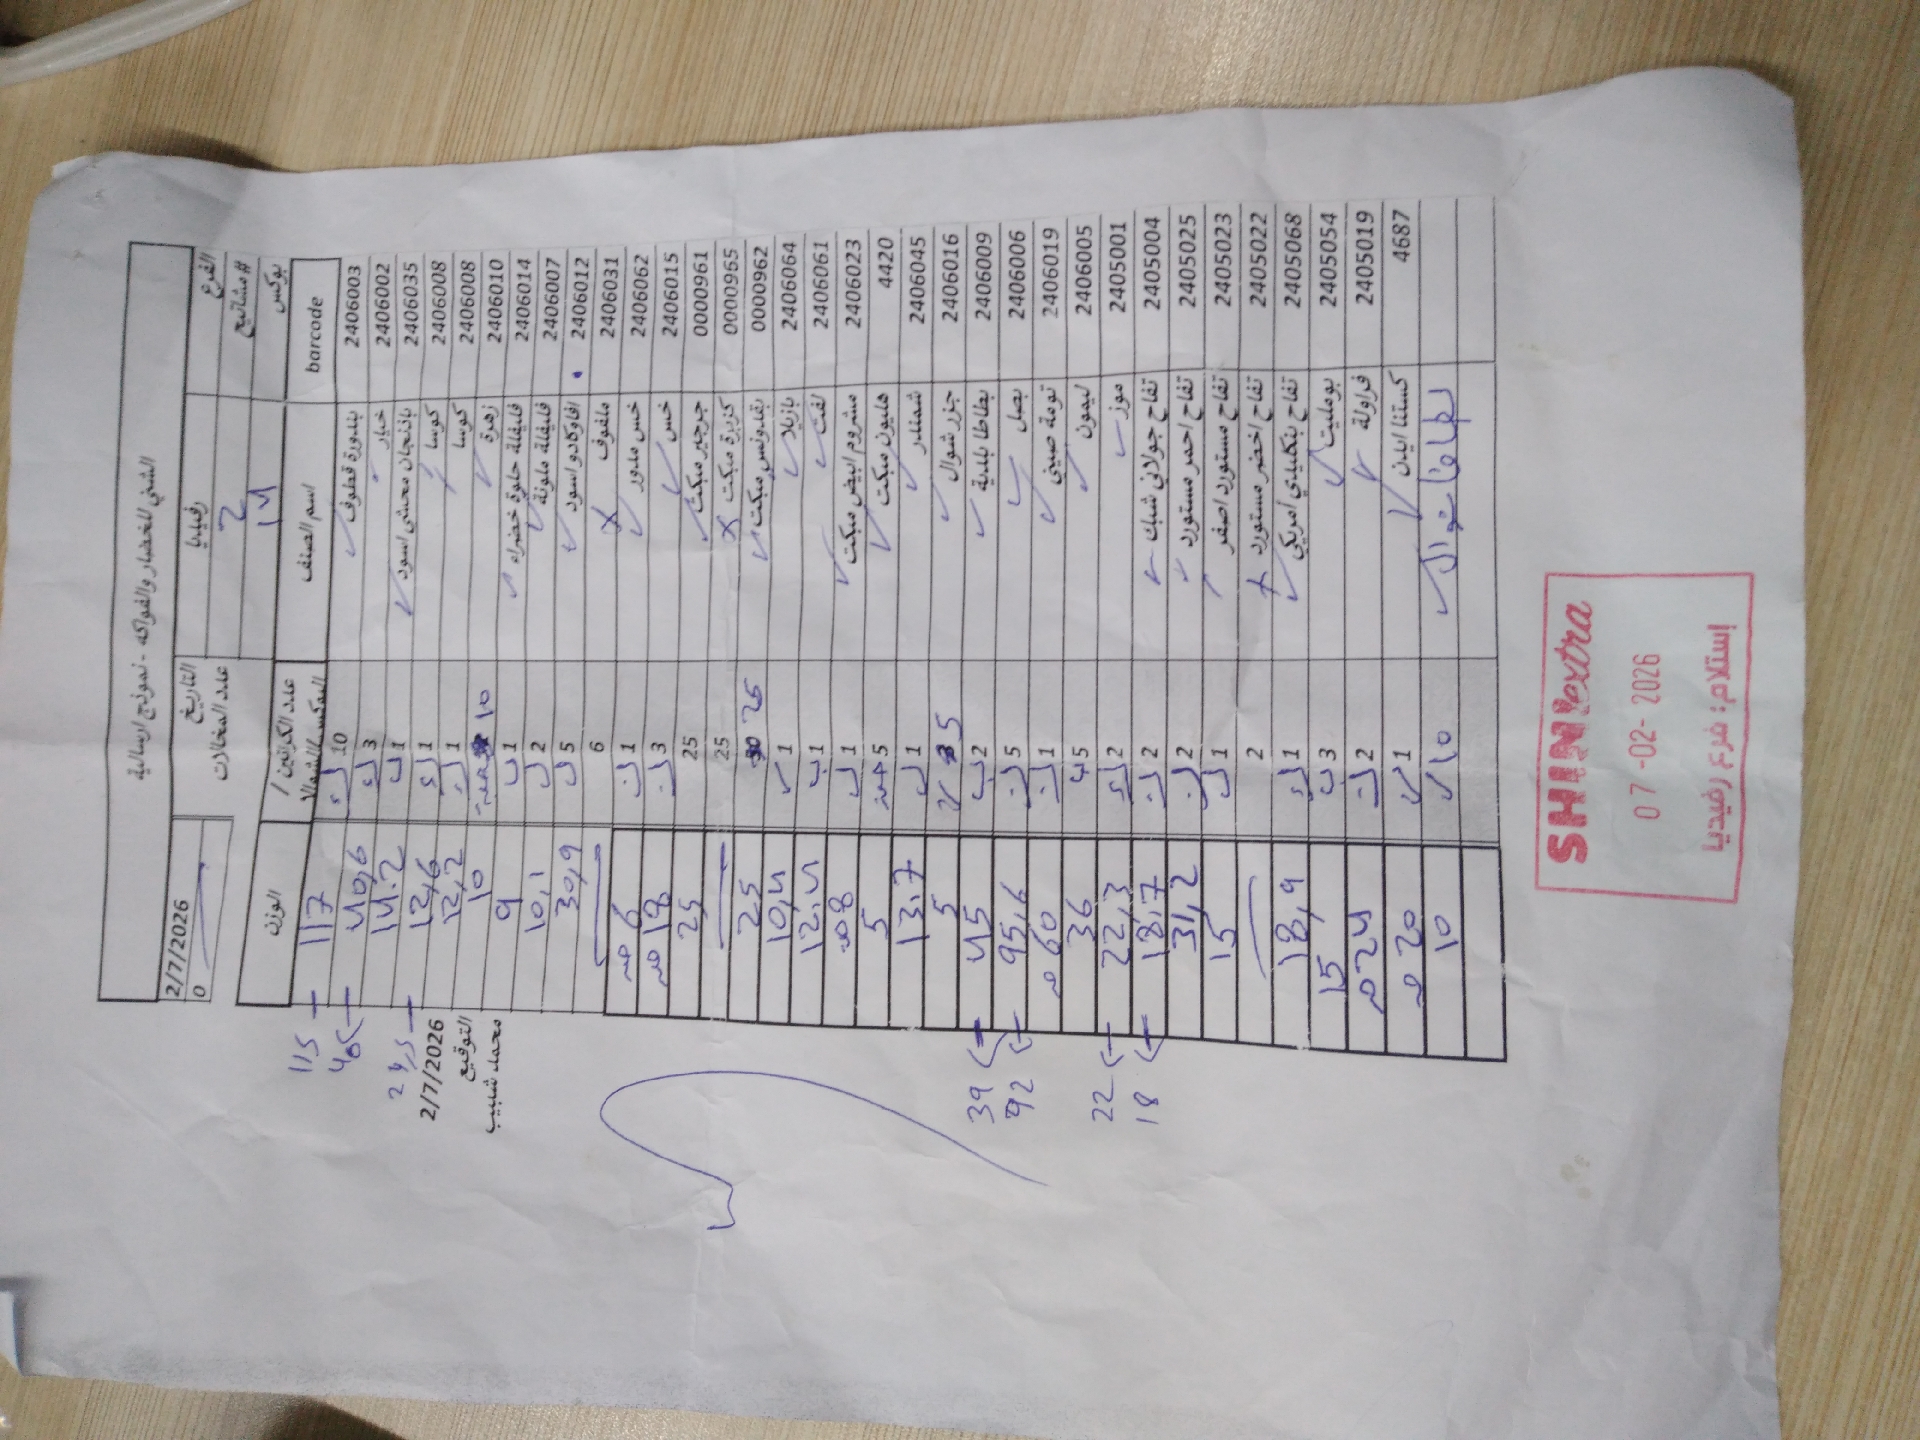 الشني للخضار والفواكه - نموذج ارسالية
الفرع رفيديا التاريخ 2/7/2026
# مشاتيح 2 عدد المخالات 0
بوكس 14
barcode اسم الصنف عدد الكراتين / المكس / الشوالات الوزن
2406003 بندورة قطوف 10 117
2406002 خيار 3 40,6
2406035 باذنجان محشي اسود 1 14.2
2406008 كوسا 1 12,6
2406008 كوسا 1 12,2
2406010 زهرة 10 10
2406014 فليفلة حلوة خضراء 1 9
2406007 فليفلة ملونة 2 10,1
2406012 افاوكادو اسود 5 30,9
2406031 ملفوف 6
2406062 خس مدور 1 6
2406015 خس 3 18
0000961 جرجير مبكت 25 25
0000965 كزبرة مبكت 25
0000962 بقدونس مبكت 25 25
2406064 بازيلا 1 10,4
2406061 لفت 1 12.4
2406023 مشروم ابيض مبكت 1 8
4420 هليون مبكت 5 5
2406045 شمندر 1 13.7
2406016 جزر شوال 5 5
2406009 بطاطا بلدية 2 45
2406006 بصل 5 95,6
2406019 تومة صيني 1 60
2406005 ليمون 5 36
2405001 موز 2 22,3
2405004 تفاح جولاني شبك 2 18,7
2405025 تفاح احمر مستورد 2 31,2
2405023 تفاح مستورد اصفر 1 15
2405022 تفاح اخضر مستورد 2
2405068 تفاح بنكليدي امريكي 1 18,9
2405054 بومليت 3 15
2405019 فراولة 2 24
4687 كستنا ايدن 1 20
10 10
115
40
2/7/2026
التوقيع
محمد شبيب
39
92
22
18
SHINI extra
07-02-2026
إستلام: فرع رفيديا